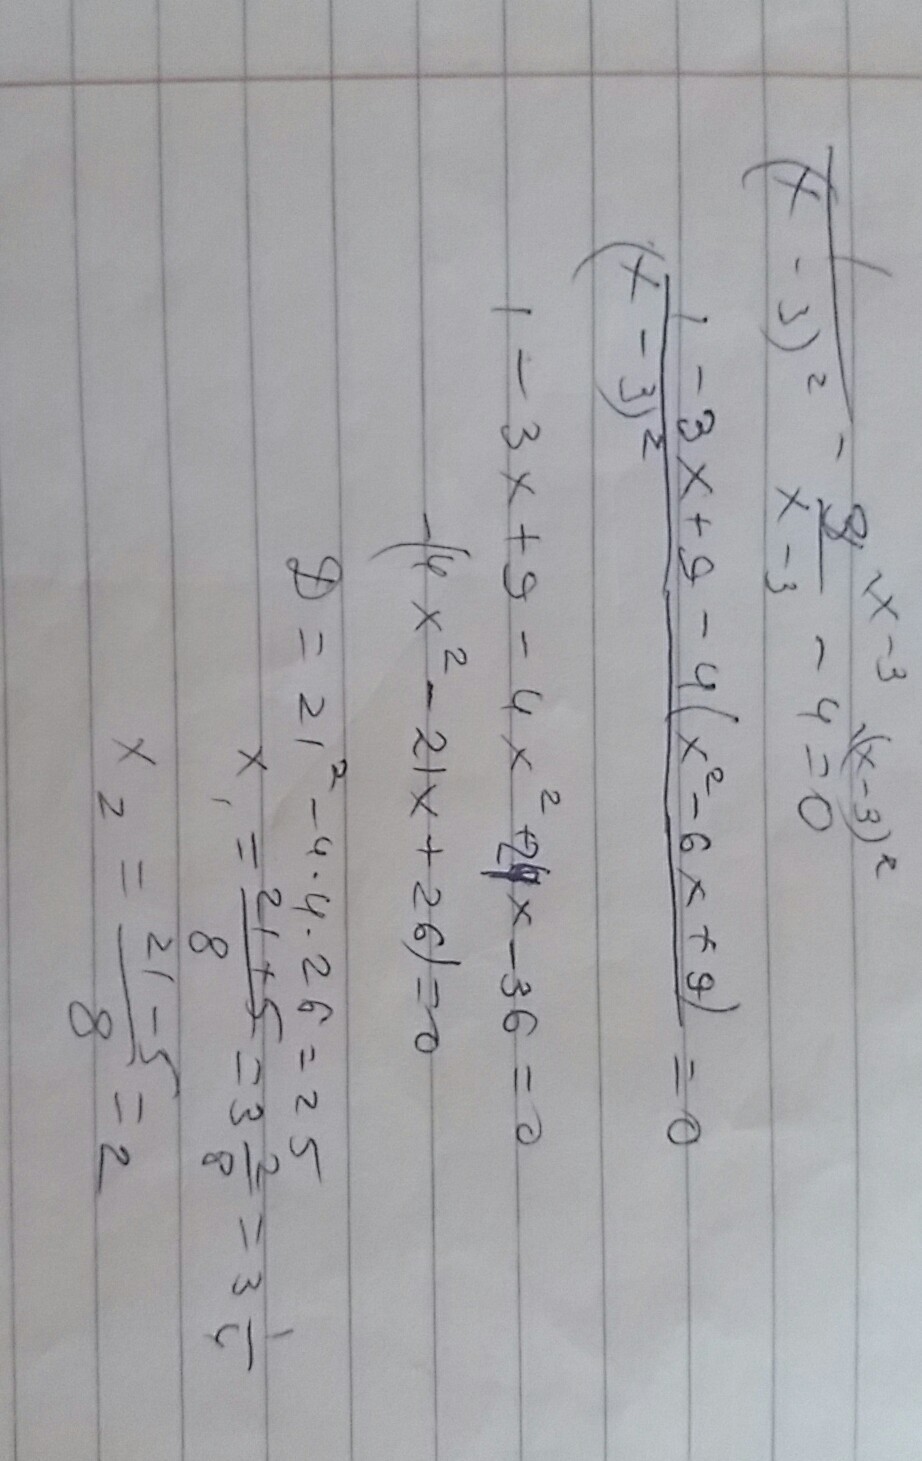 1/(x-3)² - 3/(x-3) - 4 = 0
1-3x+9-4(x²-6x+9)/(x-3)² = 0
1-3x+9-4x²+24x-36=0
-(4x²-21x+26)=0
D=21²-4·4·26=25
x₁=(21+5)/8=3 2/8=3 1/4
x₂=(21-5)/8=2